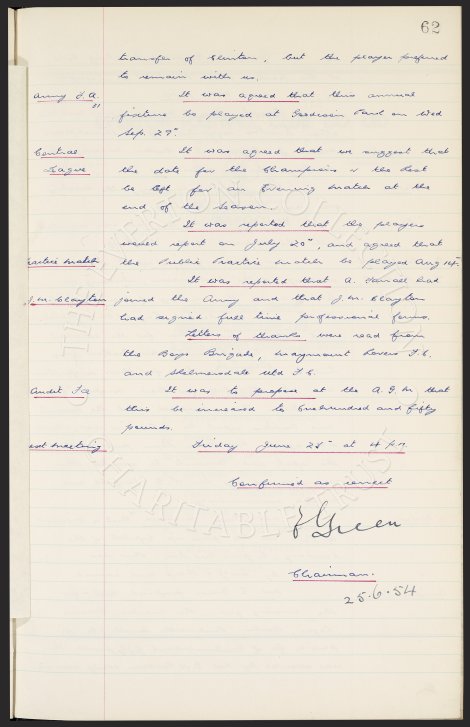 62
transfer of Clinton, but the player preferred
to remain with us.
Army F.A. It was agreed that this annual
fixture be played at Goodison Park on Wed
Sep. 29th
Central It was agreed that we suggest that
League the date for the Champions v the Rest
be left for an Evening match at the
end of the Season.
It was reported that the players
would report on July 20th, and agreed that
Practice Match the Public Practice Match be played Aug 14th
It was reported that A. had
J.M. Clayton joined the Army and that J.M. Clayton
had signed full time professional forms.
Letters of thanks were read from
the Boys Brigade, Marymount Lovers F.C.
and Skelmersdale Utd F.C.
Audit Fee It was to propose at the A.G.M. that
this be increased to One hundred and fifty
pounds.
Next Meeting Friday June 25th at 4 p.m.
Confirmed as correct
E Green
Chairman.
25.6.54
THE EVERTON COLLECTION
CHARITABLE TRUST